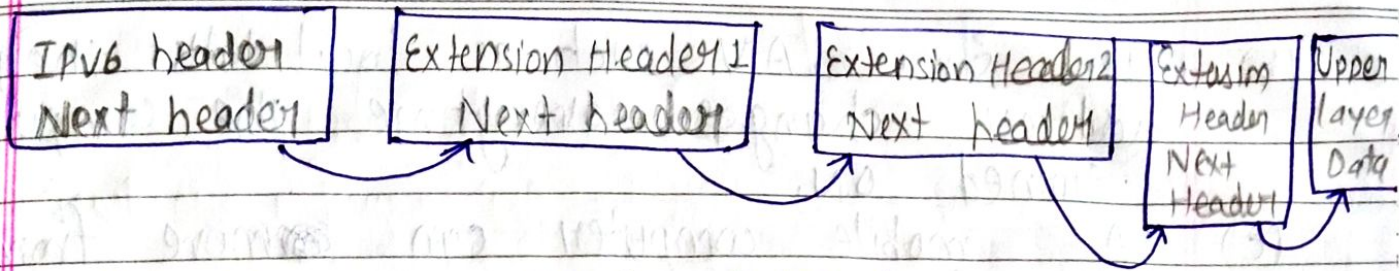 IPv6 header
Next header
Extension Header 1
Next header
Extension Header 2
Next header
Extesim
Header
Next
Header
Upper
layer
Data